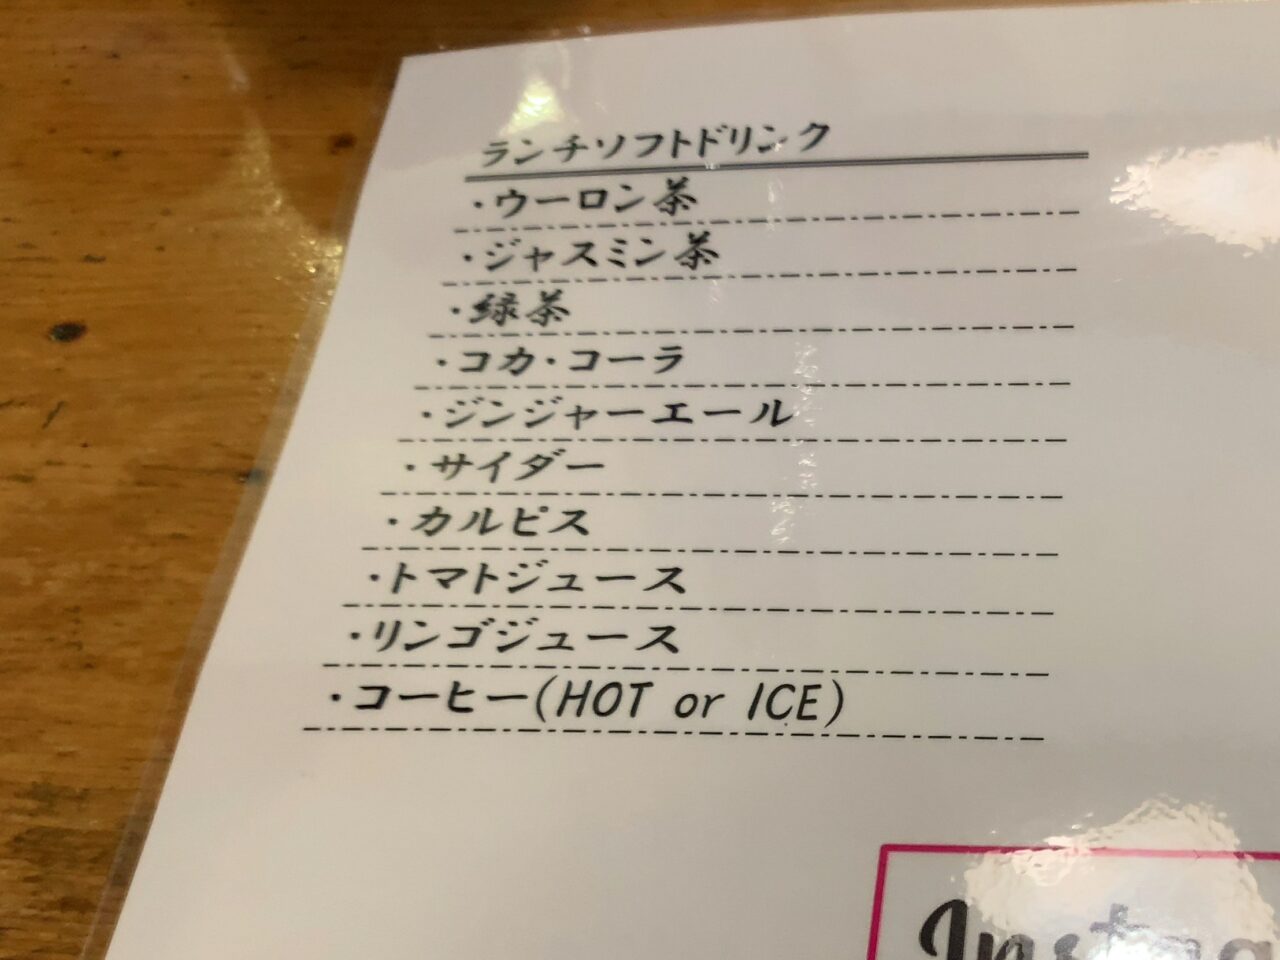 ランチソフトドリンク
・ウーロン茶
・ジャスミン茶
・緑茶
・コカ・コーラ
・ジンジャーエール
・サイダー
・カルピス
・トマトジュース
・リンゴジュース
・コーヒー(HOT or ICE)